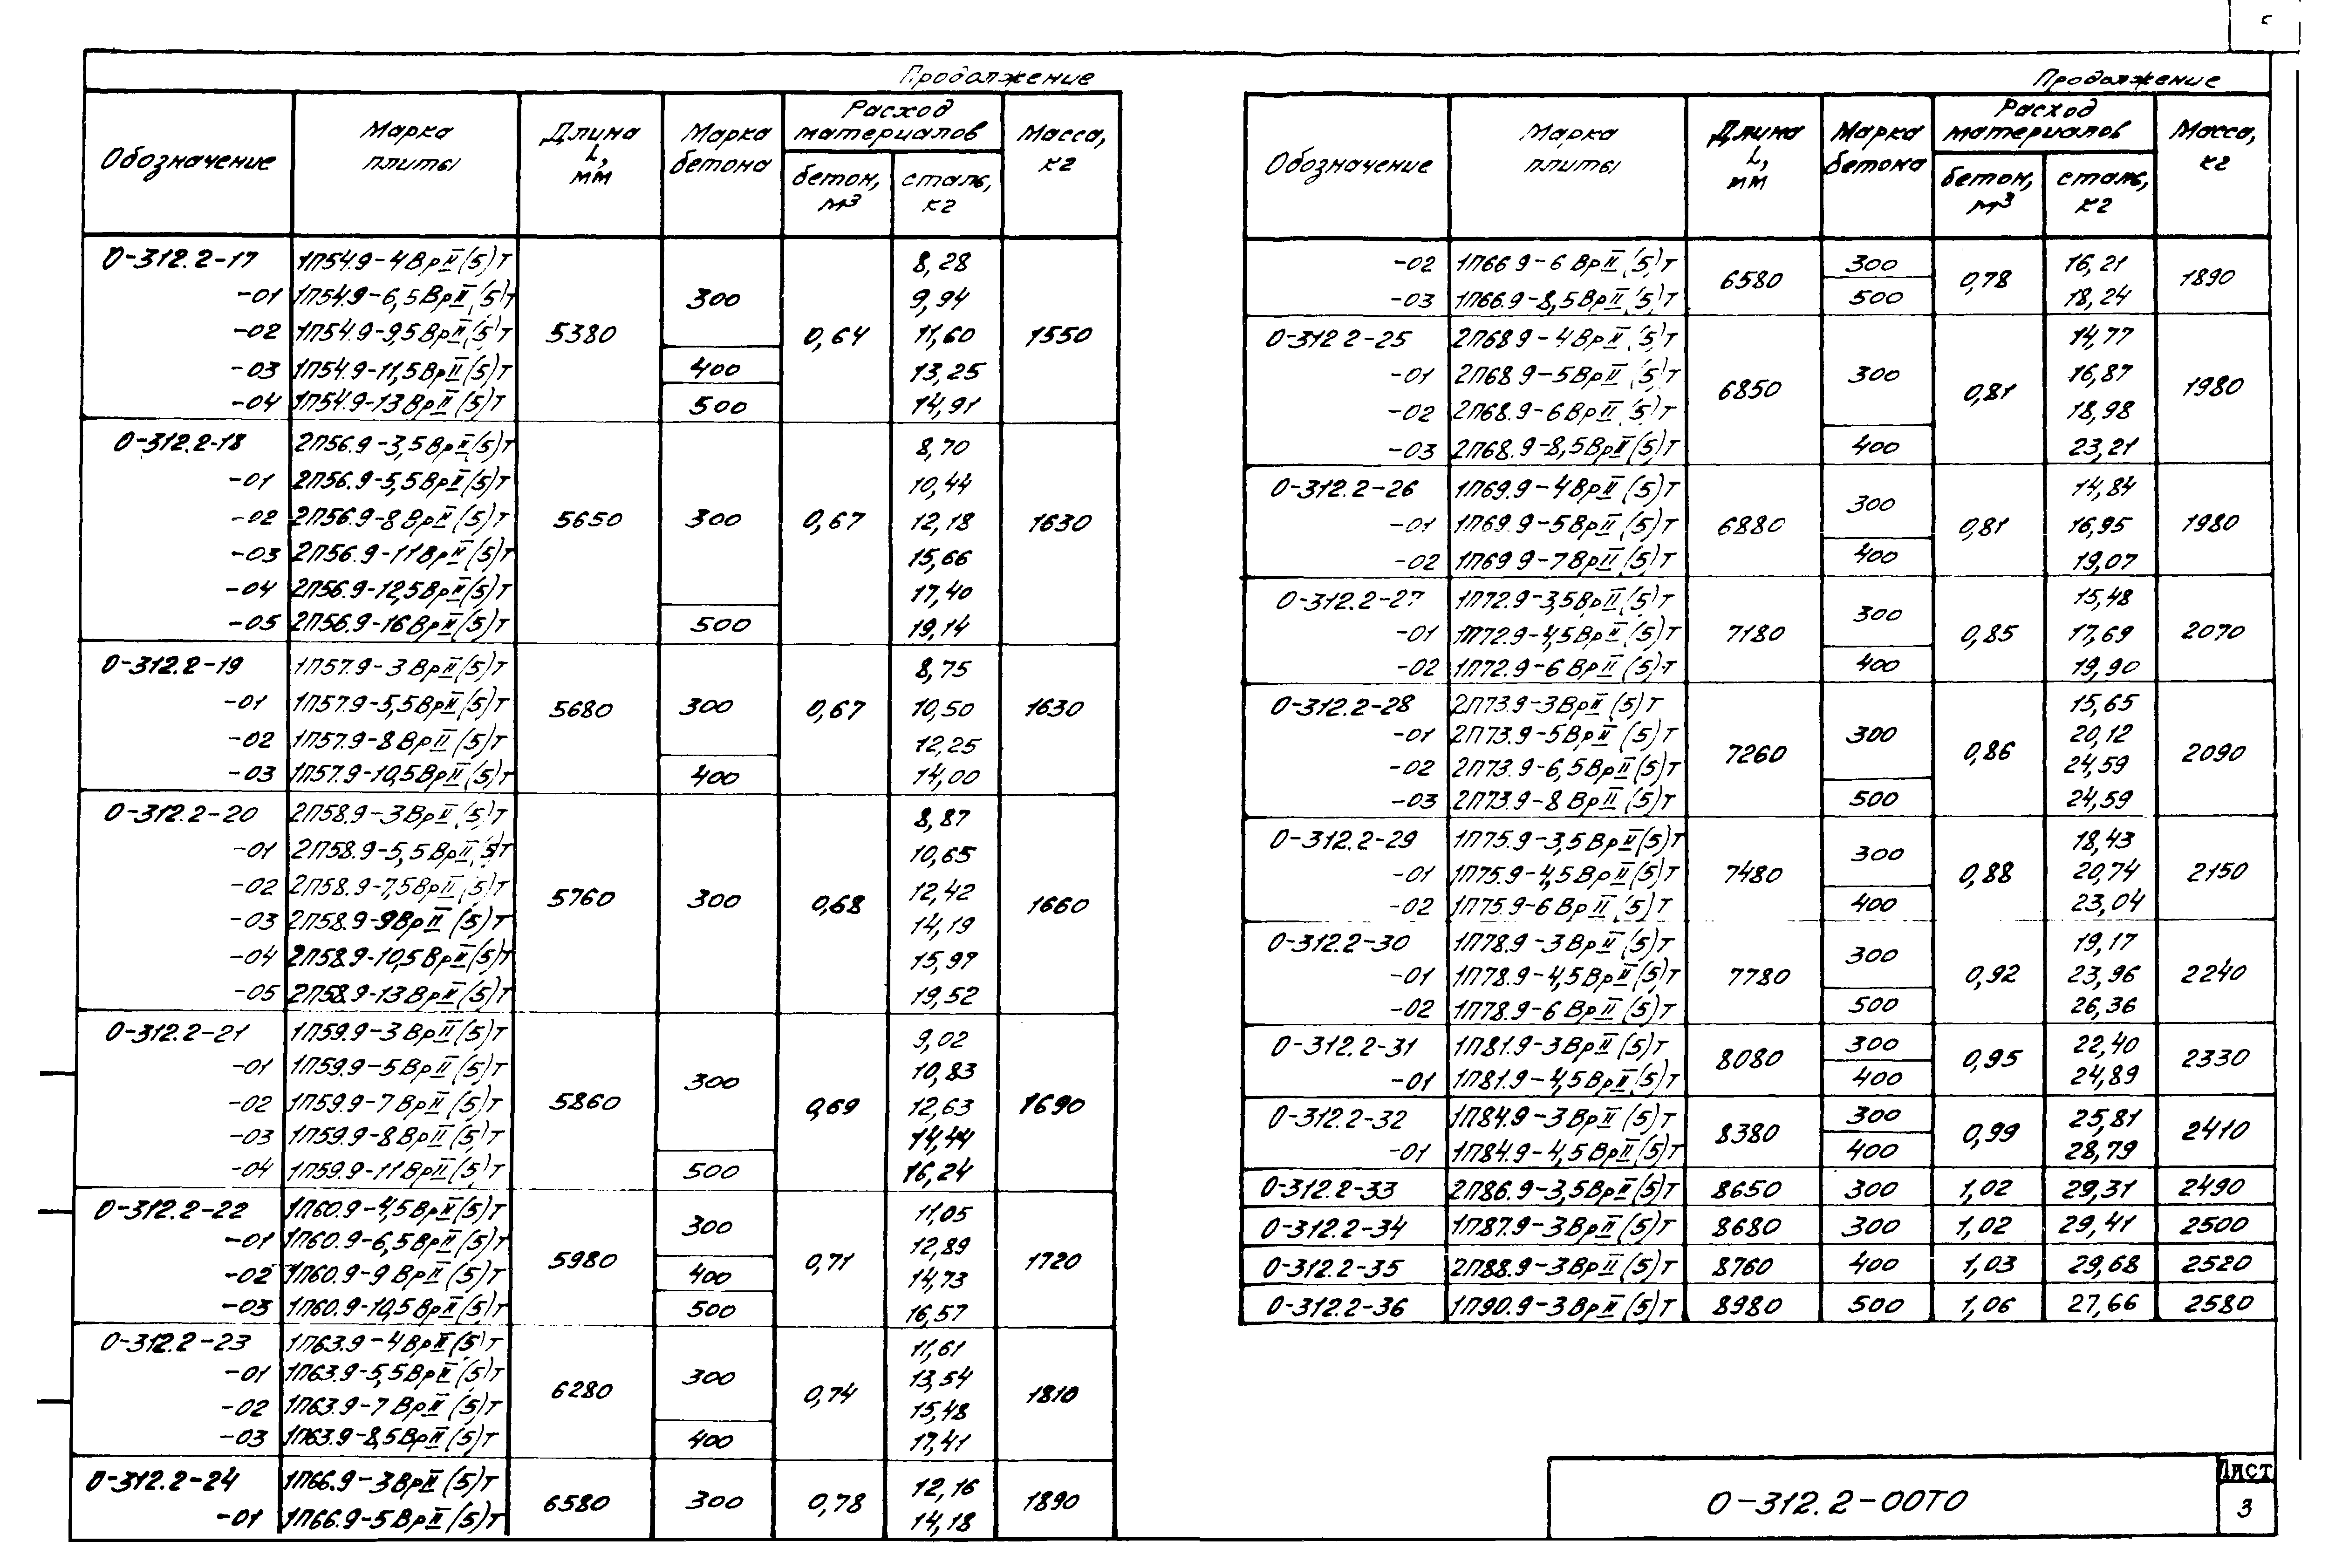 Продолжение
Обозначение Марка плиты Длина L, мм Марка бетона Расход материалов бетон, м³ сталь, кг Масса, кг
О-312.2-17 1П54.9-4ВрII(5)Т 5380 300 0,64 8,28 1550
-01 1П54.9-6,5ВрII(5)Т 9,94
-02 1П54.9-9,5ВрII(5)Т 11,60
-03 1П54.9-11,5ВрII(5)Т 400 13,25
-04 1П54.9-13ВрII(5)Т 500 14,91
О-312.2-18 2П56.9-3,5ВрII(5)Т 5650 300 0,67 8,70 1630
-01 2П56.9-5,5ВрII(5)Т 10,44
-02 2П56.9-8ВрII(5)Т 12,18
-03 2П56.9-11ВрII(5)Т 15,66
-04 2П56.9-12,5ВрII(5)Т 17,40
-05 2П56.9-16ВрII(5)Т 500 19,14
О-312.2-19 1П57.9-3ВрII(5)Т 5680 300 0,67 8,75 1630
-01 1П57.9-5,5ВрII(5)Т 10,50
-02 1П57.9-8ВрII(5)Т 12,25
-03 1П57.9-10,5ВрII(5)Т 400 14,00
О-312.2-20 2П58.9-3ВрII(5)Т 5760 300 0,68 8,87 1660
-01 2П58.9-5,5ВрII(5)Т 10,65
-02 2П58.9-7,5ВрII(5)Т 12,42
-03 2П58.9-9ВрII(5)Т 14,19
-04 2П58.9-10,5ВрII(5)Т 15,97
-05 2П58.9-13ВрII(5)Т 19,52
О-312.2-21 1П59.9-3ВрII(5)Т 5860 300 0,69 9,02 1690
-01 1П59.9-5ВрII(5)Т 10,83
-02 1П59.9-7ВрII(5)Т 12,63
-03 1П59.9-8ВрII(5)Т 14,44
-04 1П59.9-11ВрII(5)Т 500 16,24
О-312.2-22 1П60.9-4,5ВрII(5)Т 5980 300 0,71 11,05 1720
-01 1П60.9-6,5ВрII(5)Т 12,89
-02 1П60.9-9ВрII(5)Т 400 14,73
-03 1П60.9-10,5ВрII(5)Т 500 16,57
О-312.2-23 1П63.9-4ВрII(5)Т 6280 300 0,74 11,61 1810
-01 1П63.9-5,5ВрII(5)Т 13,54
-02 1П63.9-7ВрII(5)Т 15,48
-03 1П63.9-8,5ВрII(5)Т 400 17,41
О-312.2-24 1П66.9-3ВрII(5)Т 6580 300 0,78 12,16 1890
-01 1П66.9-5ВрII(5)Т 14,18
Продолжение
Обозначение Марка плиты Длина L, мм Марка бетона Расход материалов бетон, м³ сталь, кг Масса, кг
-02 1П66 9-6ВрII(5)Т 6580 300 0,78 16,21 1890
-03 1П66.9-8,5ВрII(5)Т 500 18,24
О-312 2-25 2П68 9-4ВрII(5)Т 6850 300 0,81 14,77 1980
-01 2П68 9-5ВрII(5)Т 16,87
-02 2П68.9-6ВрII(5)Т 18,98
-03 2П68.9-8,5ВрII(5)Т 400 23,21
О-312.2-26 1П69.9-4ВрII(5)Т 6880 300 0,81 14,84 1980
-01 1П69.9-5ВрII(5)Т 16,95
-02 1П69 9-7ВрII(5)Т 400 19,07
О-312.2-27 1П72.9-3,5ВрII(5)Т 7180 300 0,85 15,48 2070
-01 1П72.9-4,5ВрII(5)Т 17,69
-02 1П72.9-6ВрII(5)Т 400 19,90
О-312.2-28 2П73.9-3ВрII(5)Т 7260 300 0,86 15,65 2090
-01 2П73.9-5ВрII(5)Т 20,12
-02 2П73.9-6,5ВрII(5)Т 24,59
-03 2П73.9-8ВрII(5)Т 500 24,59
О-312.2-29 1П75.9-3,5ВрII(5)Т 7480 300 0,88 18,43 2150
-01 1П75.9-4,5ВрII(5)Т 20,74
-02 1П75.9-6ВрII(5)Т 400 23,04
О-312.2-30 1П78.9-3ВрII(5)Т 7780 300 0,92 19,17 2240
-01 1П78.9-4,5ВрII(5)Т 23,96
-02 1П78.9-6ВрII(5)Т 500 26,36
О-312.2-31 1П81.9-3ВрII(5)Т 8080 300 0,95 22,40 2330
-01 1П81.9-4,5ВрII(5)Т 400 24,89
О-312.2-32 1П84.9-3ВрII(5)Т 8380 300 0,99 25,81 2410
-01 1П84.9-4,5ВрII(5)Т 400 28,79
О-312.2-33 2П86.9-3,5ВрII(5)Т 8650 300 1,02 29,31 2490
О-312.2-34 1П87.9-3ВрII(5)Т 8680 300 1,02 29,41 2500
О-312.2-35 2П88.9-3ВрII(5)Т 8760 400 1,03 29,68 2520
О-312.2-36 1П90.9-3ВрII(5)Т 8980 500 1,06 27,66 2580
О-312.2-00ТО
Лист
3